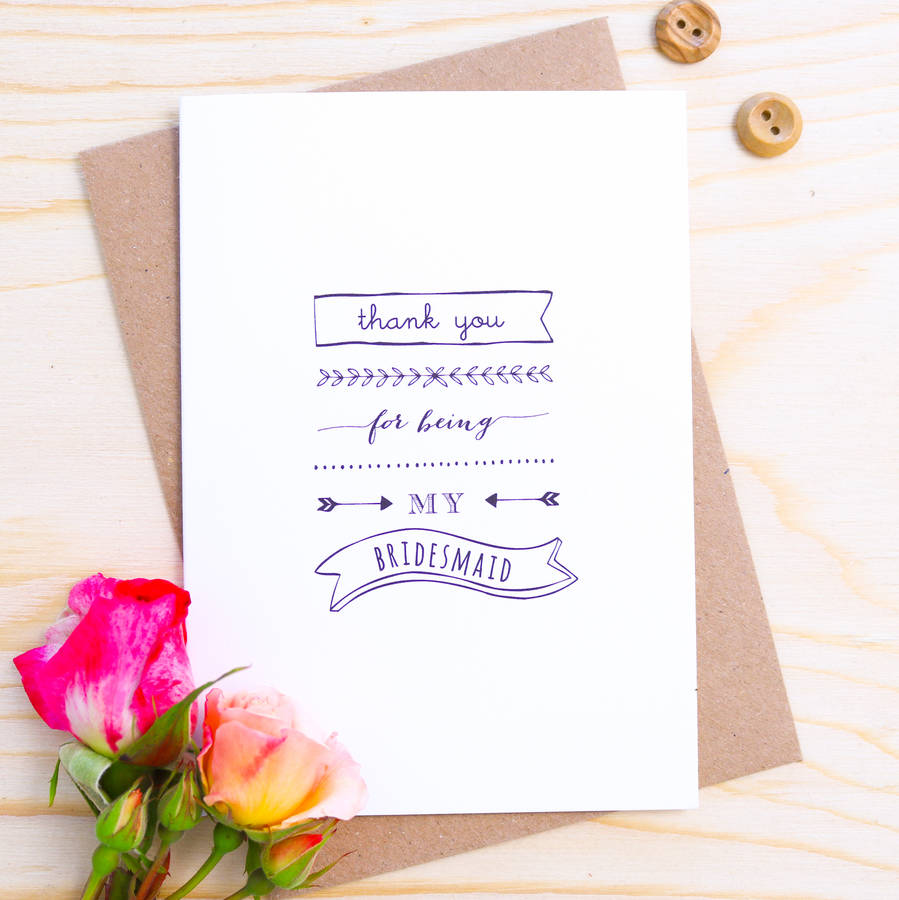 thank you
for being
MY
BRIDESMAID